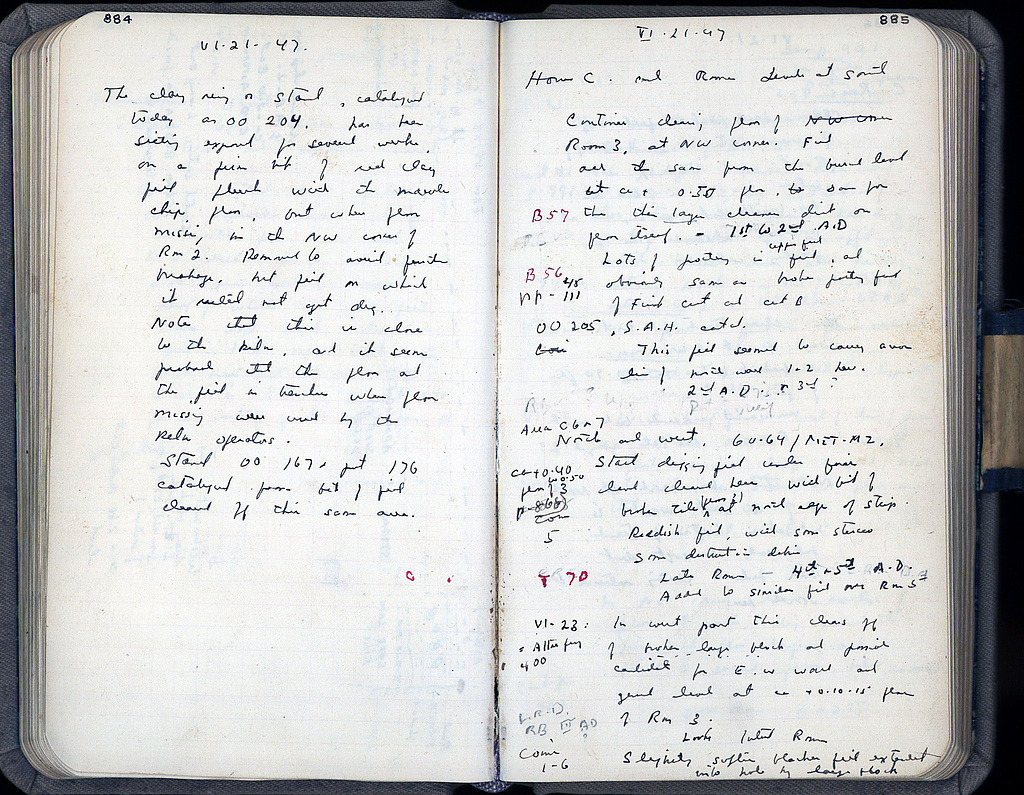 884
VI-21-47.
The clay ring or stand, catalogued
today as OO 204, has been
sitting exposed for several weeks,
on a firm bit of red clay
fill flush with the marble
chip floor, but where floor
missing, in the NW corner of
Rm 2. Removed to avoid further
breakage, but fill on which
it rested not yet dug.
Note that this is close
to the kiln, and it seems
probable that the floor and
the fill in trenches where floor
missing were used by the
kiln operators.
Stand OO 167, pot 176
catalogued from bit of fill
cleaned off this same area.
885
VI-21-47
House C. and Roman levels at South
Continue cleaning floor of NW corner
Room 3, at NW corner. Fill
all the same from the burned level
at ca + 0.50 floor, to same for
B 57 the thin layer cleaner dirt on
floor itself. - 1st to 2nd A.D
upper fill
Lots of pottery in fill, and
B 56 obviously same as broken pottery fill
pp-111 of First cut at cut B
OO 205, S.A.H. cat'd.
Coi This fill seemed to carry over
line of north wall 1-2 here.
2nd A.D. 3rd ?
Area C 6 + 7
North and west, 60-64/ΝΕΤ-Μ2.
ca +0.40 Start digging fill under
to 0.50
floor of 3 level cleaned here with bit of
(floor ?)
broken tile at north edge of strip.
Coin
5 Reddish fill, with some stucco
some destruction debris
T 70 Late Roman - 4th + 5th A.D.
Added to similar fill over Rm 5
VI-23: In west part this cleans off
of broken large block and possible
400
candidate for E-W wall and
ground level at ca +0.10-15 floor
of Rm 3.
L.R.D.
RB III AD
?
Looks later Roman
Coins
1-6 Slightly softer blacker fill extended
into hole by large block